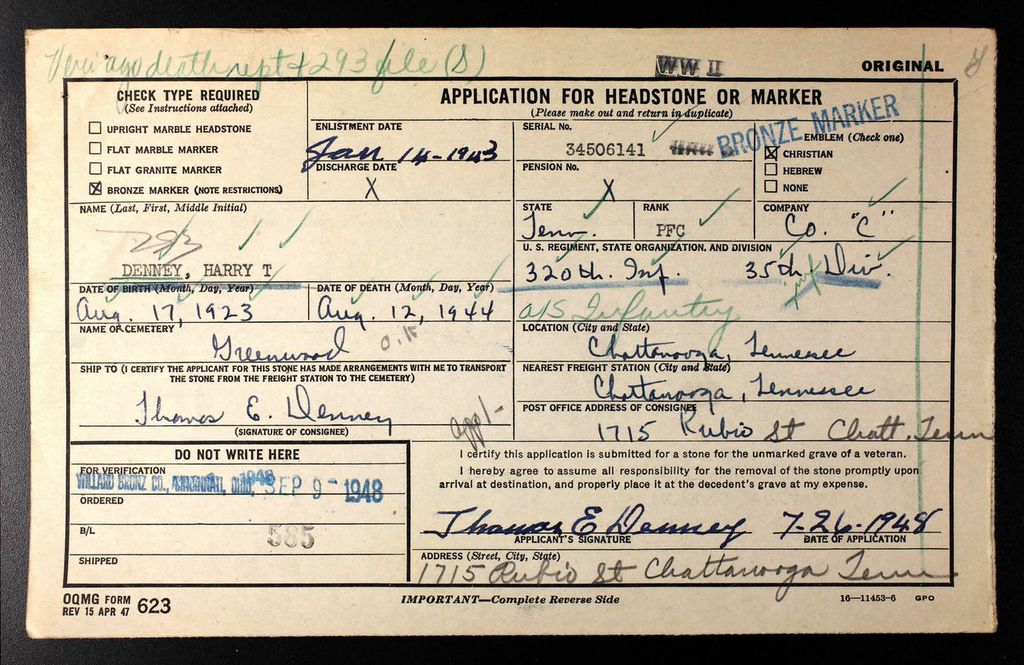 Veri ago death rept + 293 file (S)
WW II
ORIGINAL
CHECK TYPE REQUIRED
(See Instructions attached)
UPRIGHT MARBLE HEADSTONE
FLAT MARBLE MARKER
FLAT GRANITE MARKER
X BRONZE MARKER (NOTE RESTRICTIONS)
APPLICATION FOR HEADSTONE OR MARKER
(Please make out and return in duplicate)
ENLISTMENT DATE
Jan 14-1943
DISCHARGE DATE
X
SERIAL No.
34506141
PENSION No.
X
BRONZE MARKER
EMBLEM (Check one)
X CHRISTIAN
HEBREW
NONE
NAME (Last, First, Middle Initial)
293
DENNEY, HARRY T
STATE
Tenn.
RANK
PFC
COMPANY
Co. "C"
U. S. REGIMENT, STATE ORGANIZATION, AND DIVISION
320th. Inf. 35th Div.
a/s Infantry
DATE OF BIRTH (Month, Day, Year)
Aug. 17, 1923
DATE OF DEATH (Month, Day, Year)
Aug. 12, 1944
NAME OF CEMETERY
Greenwood
O.K
LOCATION (City and State)
Chattanooga, Tennessee
SHIP TO (I CERTIFY THE APPLICANT FOR THIS STONE HAS MADE ARRANGEMENTS WITH ME TO TRANSPORT
THE STONE FROM THE FREIGHT STATION TO THE CEMETERY)
Thomas E. Denney
(SIGNATURE OF CONSIGNEE)
NEAREST FREIGHT STATION (City and State)
Chattanooga, Tennessee
POST OFFICE ADDRESS OF CONSIGNEE
1715 Rubio St Chatt. Tenn
DO NOT WRITE HERE
FOR VERIFICATION
WILLARD BRONZ CO., CINCINNATI, OHIO, 1948 SEP 9 - 1948
ORDERED
B/L
585
SHIPPED
I certify this application is submitted for a stone for the unmarked grave of a veteran.
I hereby agree to assume all responsibility for the removal of the stone promptly upon
arrival at destination, and properly place it at the decedent's grave at my expense.
Thomas E Denney 7-26-1948
APPLICANT'S SIGNATURE DATE OF APPLICATION
ADDRESS (Street, City, State)
1715 Rubio St Chattanooga Tenn.
OQMG FORM
REV 15 APR 47 623
IMPORTANT—Complete Reverse Side
16—11453-6 GPO